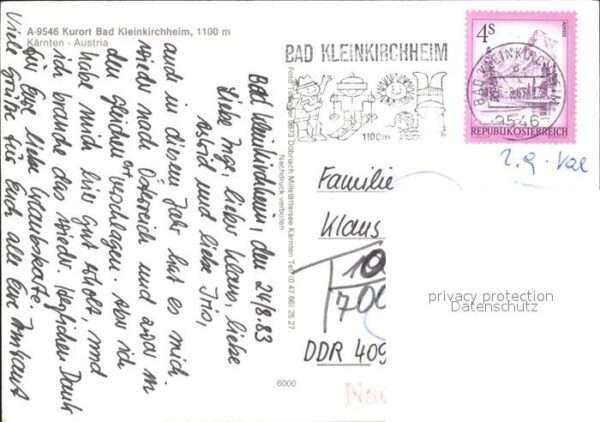 A-9546 Kurort Bad Kleinkirchheim, 1100 m
Kärnten - Austria
Bad Kleinkirchheim, den 24/8.83
Liebe Inge, lieber Klaus, liebe
Astrid und liebe Iris,
auch in diesem Jahr hat es mich
wieder nach Österreich und zwar in
den gleichen Ort verschlagen. Aber ich
habe mich hier gut erholt, und
ich brauche das wieder. Herzlichen Dank
für Eure liebe Urlaubskarte.
Viele Grüße für Euch alle Eure
9873 Döbriach Millstättersee Kärnten Tel. (0 47 66) 25 27
Nachdruck verboten
6000
BAD KLEINKIRCHHEIM
1100m
4S
BAD KLEINKIRCHHEIM
9546
REPUBLIK ÖSTERREICH
2.9.
Familie
Klaus
10
700
DDR 409
privacy protection
Datenschutz